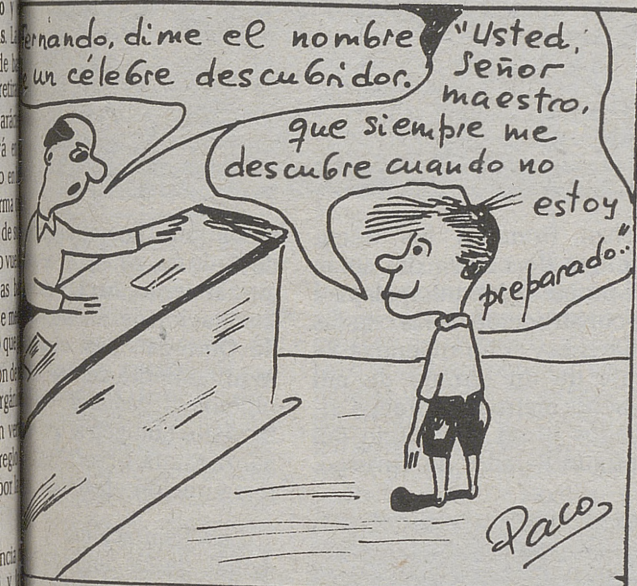 Fernando, dime el nombre
e un célebre descubridor.
"Usted,
Señor
maestro,
que siempre me
descubre cuando no
estoy
preparado".
Paco